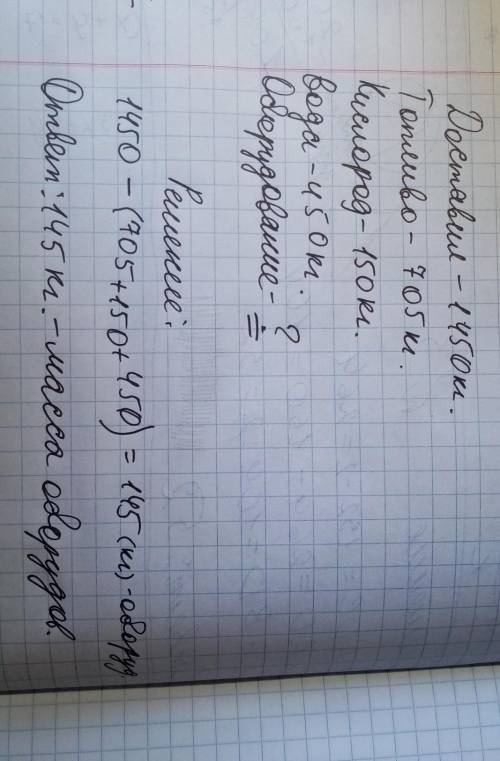 Доставил - 1450кг.
Топливо - 705 кг.
Кислород - 150кг.
вода - 450кг.
Оборудование - ?
Решение:
1450 - (705+150+450) = 145 (кг) - оборуд
Ответ: 145 кг. - масса оборудов.